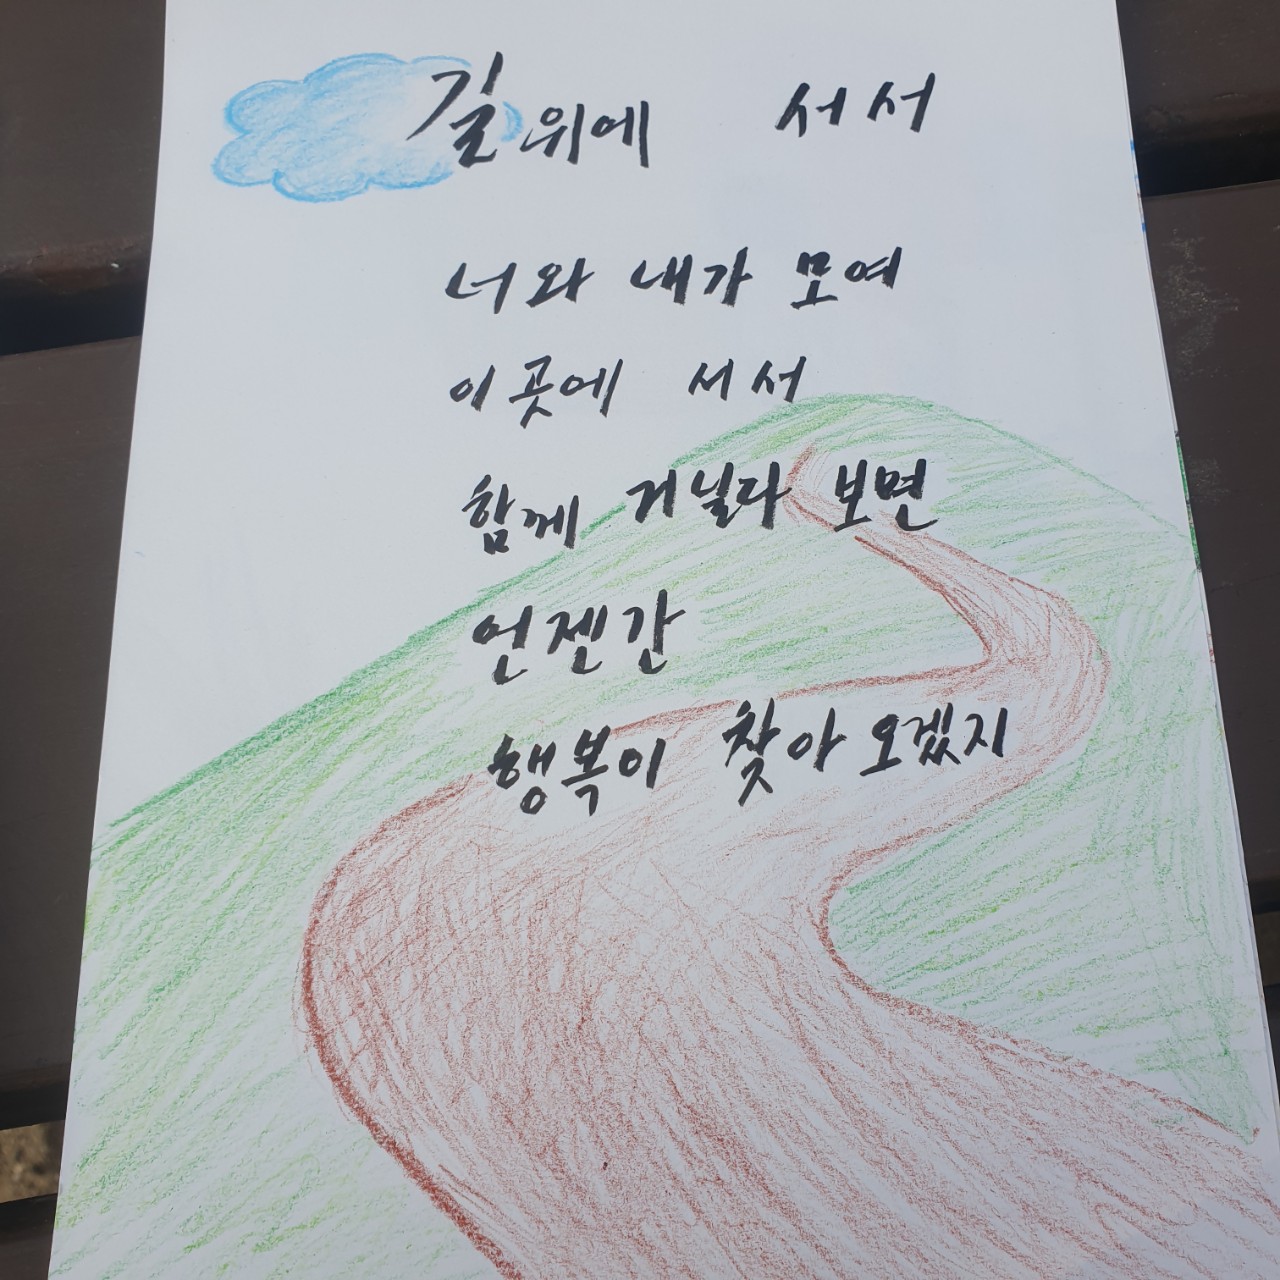 길 위에 서서
너와 내가 모여
이곳에 서서
함께 거닐다 보면
언젠간
행복이 찾아 오겠지